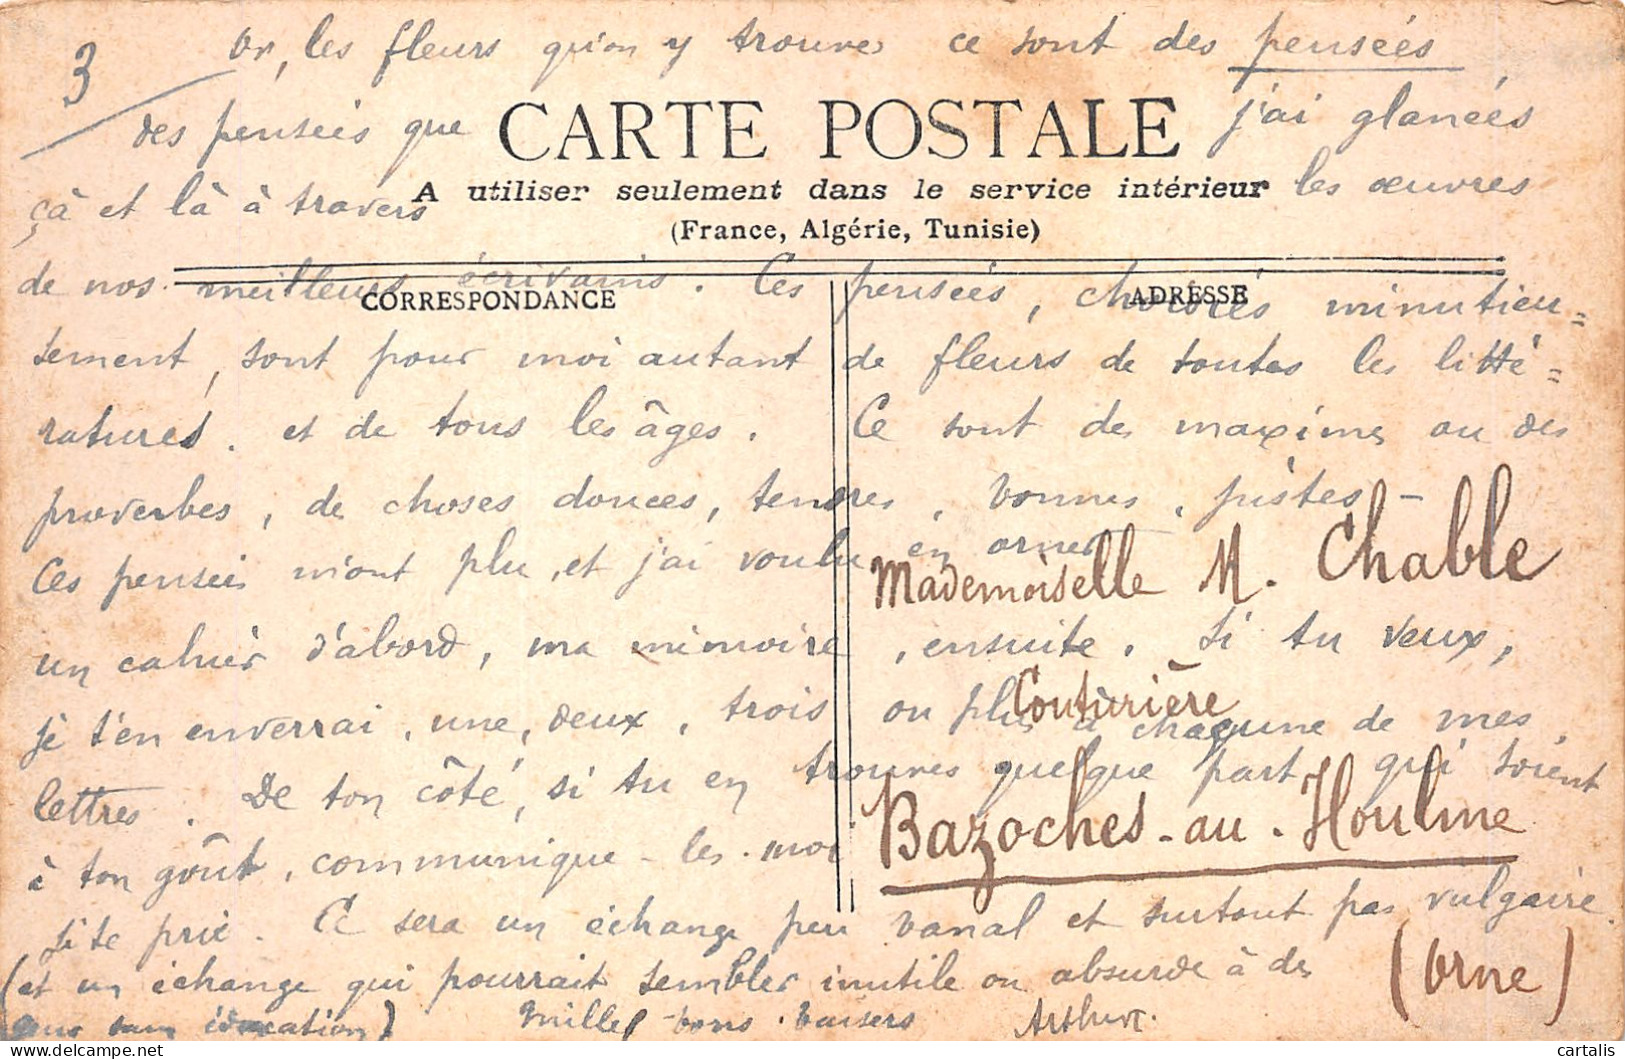 3
Or, les fleurs qu'on y trouve ce sont des pensées
des pensées que CARTE POSTALE j'ai glanées
çà et là à travers A utiliser seulement dans le service intérieur les œuvres
(France, Algérie, Tunisie)
de nos meilleurs écrivains. Ces pensées, choisies minutieu=
CORRESPONDANCE ADRESSE
sement, sont pour moi autant de fleurs de toutes les litté=
ratures. et de tous les âges. Ce sont des maximes ou des
proverbes, de choses douces, tendres, bonnes, justes -
Ces pensées m'ont plu, et j'ai voulu en orner
Mademoiselle M. Chable
un cahier d'abord, ma mémoire, ensuite. Si tu veux,
Couturière
je t'en enverrai, une, deux, trois ou plus à chacune de mes
lettres. De ton côté, si tu en trouves quelque part qui soient
Bazoches-au-Houlme
à ton goût, communique-les-moi
je te prie. Ce sera un échange peu banal et surtout pas vulgaire.
(Orne)
(et un échange qui pourrait sembler inutile ou absurde à des
sans éducation) Mille bons baisers Arthur.
cartalis